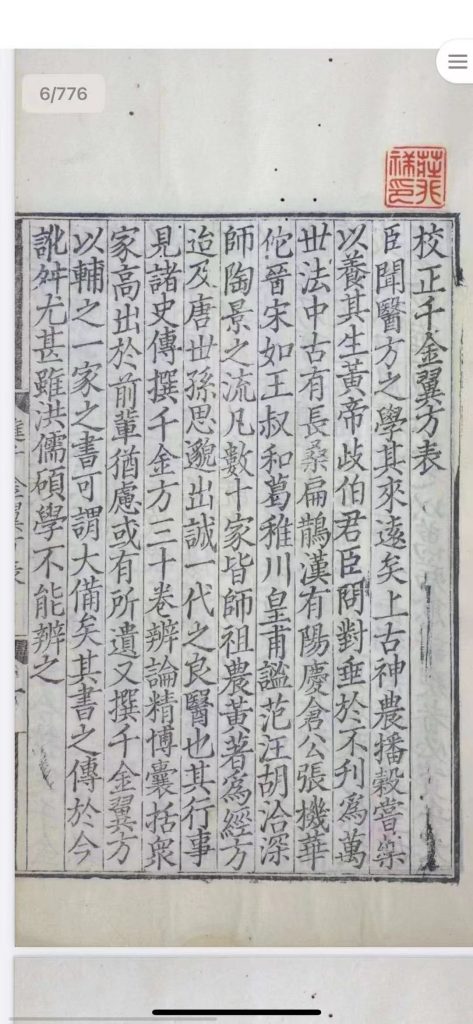 6/776
莊兆祥印
校正千金翼方表
臣聞醫方之學其來遠矣上古神農播穀嘗藥
以養其生黃帝歧伯君臣問對垂於不刊爲萬
世法中古有長桑扁鵲漢有陽慶倉公張機華
佗晉宋如王叔和葛稚川皇甫謐范汪胡洽深
師陶景之流凡數十家皆師祖農黃著爲經方
迨及唐世孫思邈出誠一代之良醫也其行事
見諸史傳撰千金方三十卷辨論精博囊括衆
家高出於前輩猶慮或有所遺又撰千金翼方
以輔之一家之書可謂大備矣其書之傳於今
訛舛尤甚雖洪儒碩學不能辨之